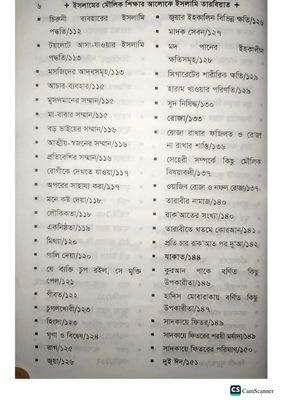 ৬ ❖ ইসলামের মৌলিক শিক্ষার আলোকে ইসলামি তারবিয়াত ❖
চিরুনী ব্যবহারের ইসলামি
পদ্ধতি/১১২
টয়লেটে আসা-যাওয়ার ইসলামি
পদ্ধতি/১১৩
মসজিদের আদবসমূহ/১১৩
আচার-ব্যবহার/১১৫
মুসলমানের সম্মান/১১৫
মা-বাবার সম্মান/১১৫
বড় ভাইয়ের সম্মান/১১৬
আত্মীয়-স্বজনের সম্মান/১১৬
প্রতিবেশির সম্মান/১১৬
রোগীকে দেখতে যাওয়া/১১৭
অপরের সাহায্য করা/১১৭
মনে কষ্ট দেয়া/১১৮
লৌকিকতা/১১৮
একনিষ্ঠতা/১১৯
মিথ্যা/১২০
গালি দেয়া/১২০
যে ব্যক্তি চুপ রইল, সে মুক্তি
পেল/১২১
গীবত/১২২
চুগলখোরী/১২৩
হিংসা/১২৩
ঘৃণা ও বিদ্বেষ/১২৪
রাগ/১২৫
জুয়া/১২৬
জুয়ার ইহকালিন বিভিন্ন ক্ষতি/১২৬
মাদক সেবন/১২৭
মদ পানের ইহকালীন
ক্ষতিসমূহ/১২৮
সিগারেটের শারীরিক ক্ষতি/১২৯
হারাম খাওয়ার পরিণতি/১২৯
সুদ নিষিদ্ধ/১৩০
রোজা/১৩৩
রোজা রাখার ফজিলত ও রোজা
না রাখার শাস্তি/১৩৩
সেহেরী সম্পর্কে কিছু মৌলিক
বিষয়াবলী/১৩৭
ওয়াজিব রোজা ও নফল রোজা/১৩৭
তারাবীর নামাজ/১৪০
রাক‘আতের সংখ্যা/১৪০
তারাবীতে খতমে কোরআন/১৪১
প্রতি চার রাক‘আত পর দু‘আ/১৪২
যাকাত/১৪৪
কুরআন পাকে বর্ণিত কিছু
উপকারীতা/১৪৬
হাদিস মোবারাকায় বর্ণিত কিছু
উপকারীতা/১৪৭
সাদকায়ে ফিতর/১৪৯
সাদকায়ে ফিতরের শরয়ী মর্যাদা/১৪৯
সাদকায়ে ফিতরের পরিমাণ/১৫০
দুই ঈদ/১৫১
CS CamScanner